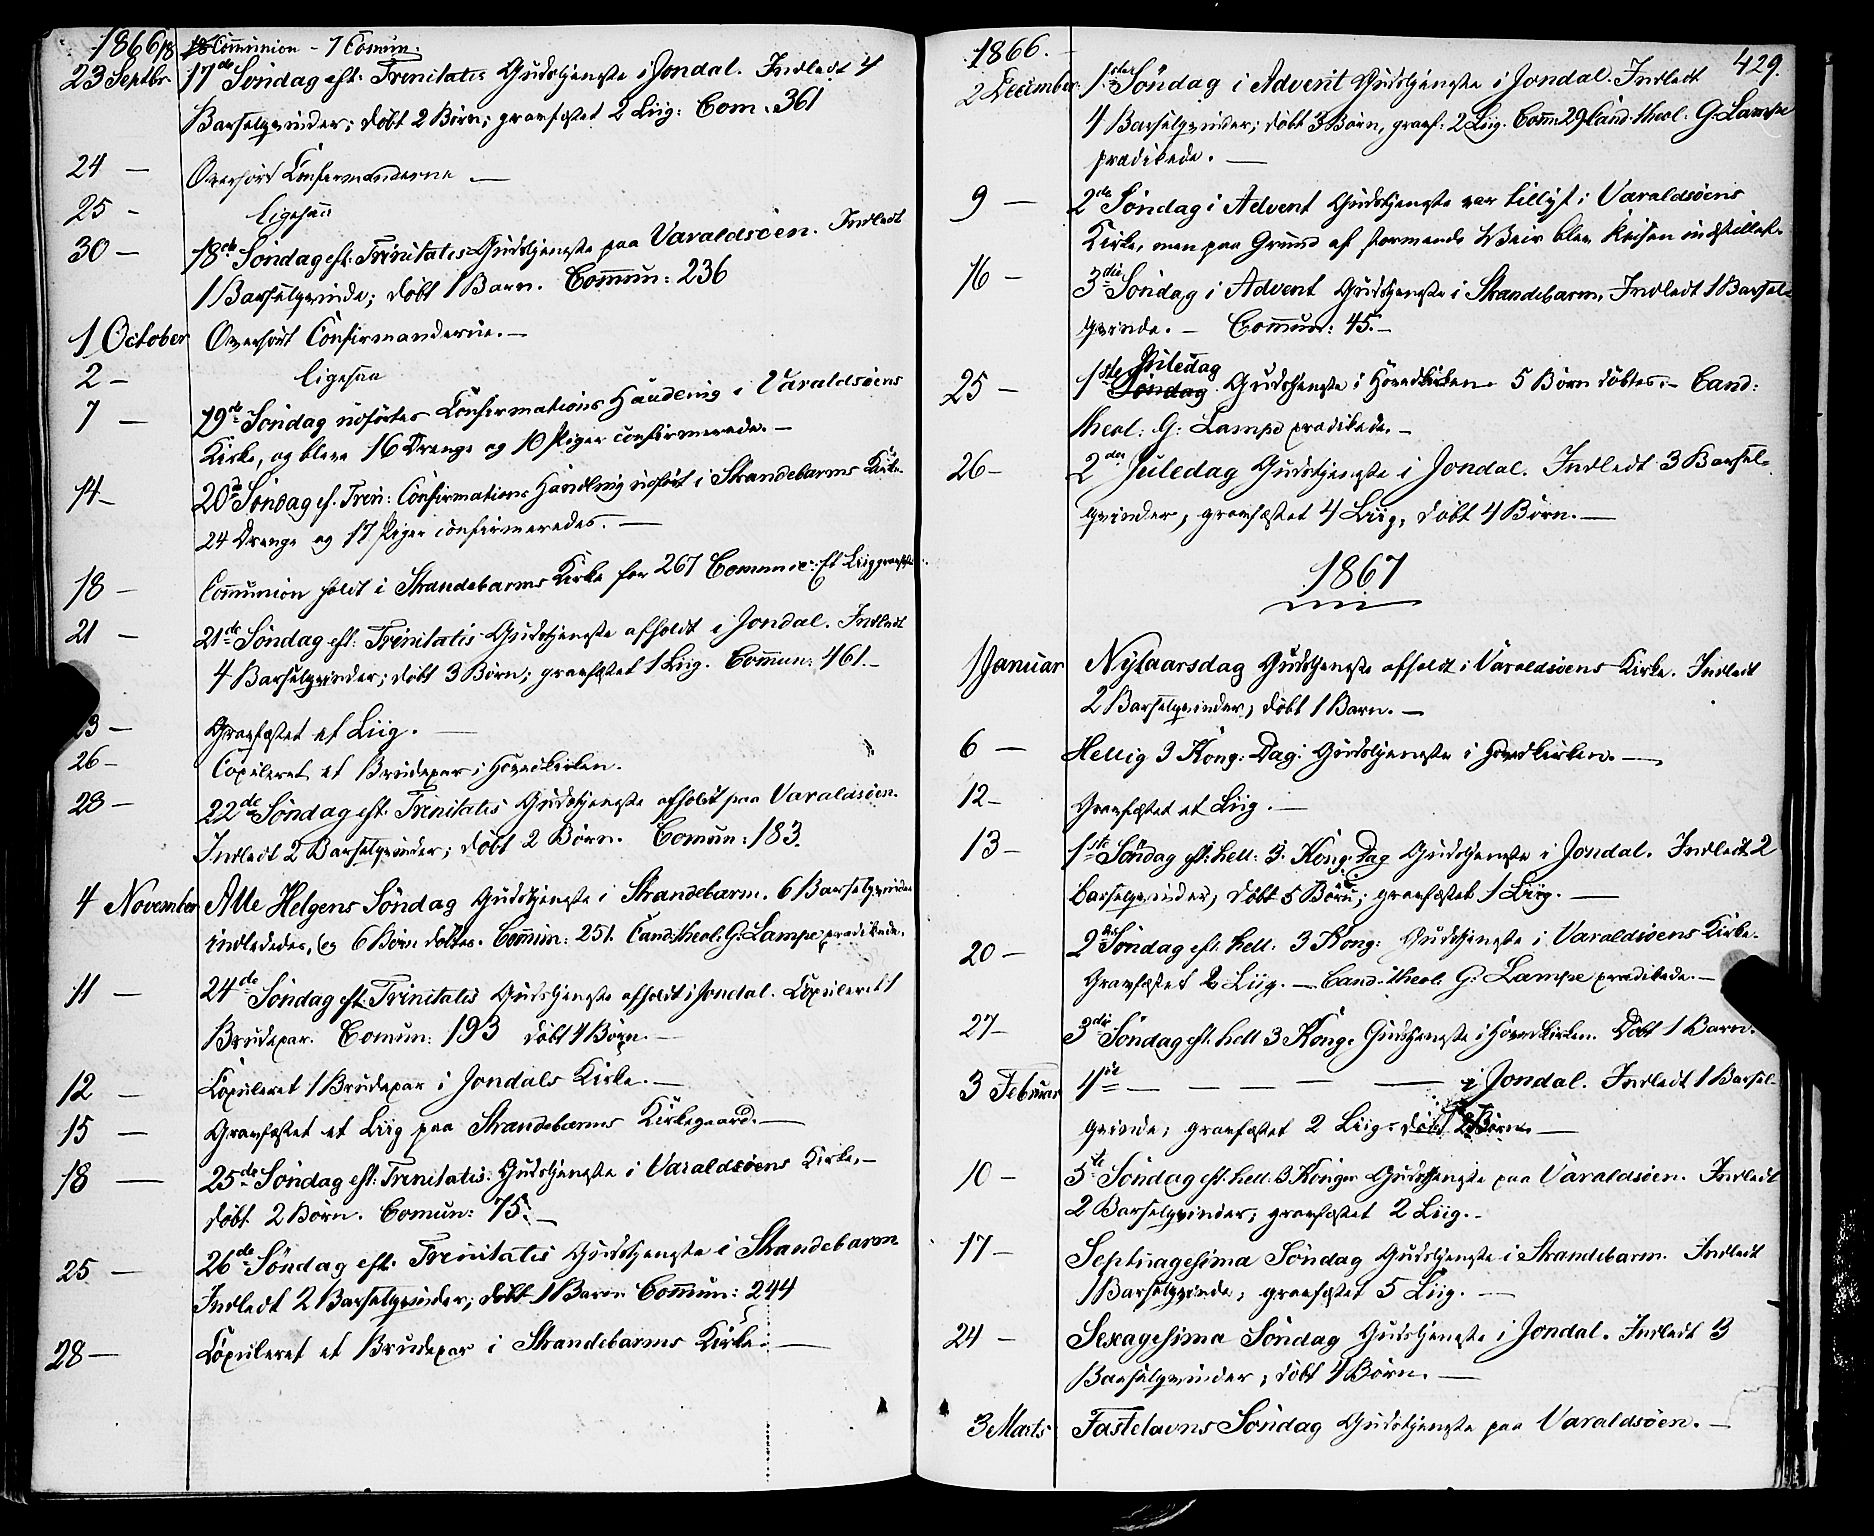 1866 18 Communion - 1 Comun.
23 Septbr. 17de Søndag eft. Trinitatis Gudstjeneste i Jondal. Indledt 4
Barselqvinder; døbt 2 Børn; gravfæstet 2 Liig: Com. 361
24 — Overhørt Confirmanderne —
25 - ligesaa
30 — 18de Søndag eft. Trinitatis Gudstjeneste paa Varaldsöen. Indledt
1 Barselqvinde; døbt 1 Barn. Commun: 236
1 October Overhørt Confirmanderne. —
2 — ligesaa
7 — 19de Søndag udførtes Confirmations Handling i Varaldsöens
Kirke, og bleve 16 Drenge og 10 Piger confirmerede. —
14 — 20de Søndag ef. Trin: Confirmations Handling udført i Strandebarms Kirke
24 Drenge og 17 Piger confirmeredes. —
18 — Communion holdt i Strandebarms Kirke for 267 Commun: Et Liig gravfæstet
21 — 21de Søndag eft: Trinitatis Gudstjeneste afholdt i Jondal. Indledt
4 Barselqvinder; døbt 3 Børn; gravfæstet 1 Liig. Commun: 461. —
23 — Gravfæstet et Liig. —
26 — Copuleret et Brudepar i Hovedkirken.
28 — 22de Søndag eft. Trinitatis Gudstjeneste afholdt paa Varaldsöen.
Indledt 2 Barselqvinder; døbt 2 Børn. Comun: 183.
4 November Alle Helgens Søndag Gudstjeneste i Strandebarm. 6 Barselqvinder
indlededes, og 6 Børn døbtes. Commun: 251. Cand: theol: G: Lampe prædikede.
11 — 24de Søndag eft. Trinitatis Gudstjeneste afholdt i Jondal. Copuleret 1
Brudepar. Comun: 193 døbt 4 Børn. —
12 — Copuleret 1 Brudepar i Jondals Kirke. —
15 — Gravfæstet et Liig paa Strandebarms Kirkegaard. —
18 — 25de Søndag eft: Trinitatis: Gudstjeneste i Varaldsöens Kirke. —
døbt 2 Børn. Comun: 75. —
25 — 26de Søndag eft. Trinitatis Gudstjeneste i Strandebarm
Indledt 2 Barselqvinder; døbt 1 Barn Commun: 244
28 — Copuleret et Brudepar i Strandebarms Kirke. —
1866. 429.
2 December 1ste Søndag i Advent Gudstjeneste i Jondal. Indledt
4 Barselqvinder; døbt 3 Børn, gravf: 2 Liig. Comm: 29 Cand. theol. G. Lampe
prædikede. —
9 — 2de Søndag i Advent Gudstjeneste var tillyst i Varaldsöens
Kirke, men paa Grund af stormende Veir blev Reisen indstillet.
16 — 3die Søndag i Advent Gudstjeneste i Strandebarm. Indledt 1 Barsel-
qvinde. — Commun: 45. —
25 — 1ste Søndag Juledag Gudstjeneste i Hovedkirken 5 Børn døbtes. — Cand:
theol: G: Lampe prædikede. —
26 — 2den Juledag Gudstjeneste i Jondal. Indledt 3 Barsel-
qvinder, gravfæstet 4 Liig, døbt 4 Børn. —
1867
1 Januar Nytaarsdag Gudstjeneste afholdt i Varaldsöens Kirke. Indledt
2 Barselqvinder, døbt 1 Barn. —
6 — Hellig 3 Kong: Dag: Gudstjeneste i Hovedkirken. —
12 — Gravfæstet et Liig. —
13 — 1ste Søndag eft: hell: 3. Kong. Dag Gudstjeneste i Jondal. Indledt 2
Barselqvinder, døbt 5 Børn; gravfæstet 1 Liig. —
20 — 2de Søndag eft. hell: 3 Kong: Gudstjeneste i Varaldsöens Kirke.
Gravfæstet 2 Liig. — Cand: theol: G: Lampe prædikede. —
27 — 3die Søndag eft. hell 3 Kong. Gudstjeneste i Hovedkirken. Døbt 1 Barn.
3 Februar 4de — — — — i Jondal. Indledt 1 Barsel-
qvinde; gravfæstet 2 Liig. døbt 2 Børn. —
10 — 5te Søndag eft. hell: 3 Konger Gudstjeneste paa Varaldsöen. Indledt
2 Barselqvinder; gravfæstet 2 Liig. -
17 — Septuagesima Søndag Gudstjeneste i Strandebarm. Indledt
1 Barselqvinde; gravfæstet 5 Liig. —
24 — Sexagesima Søndag Gudstjeneste i Jondal. Indledt 3
Barselqvinder, døbt 4 Børn. —
3 Marts Fastelavns Søndag Gudstjeneste paa Varaldsöen. —